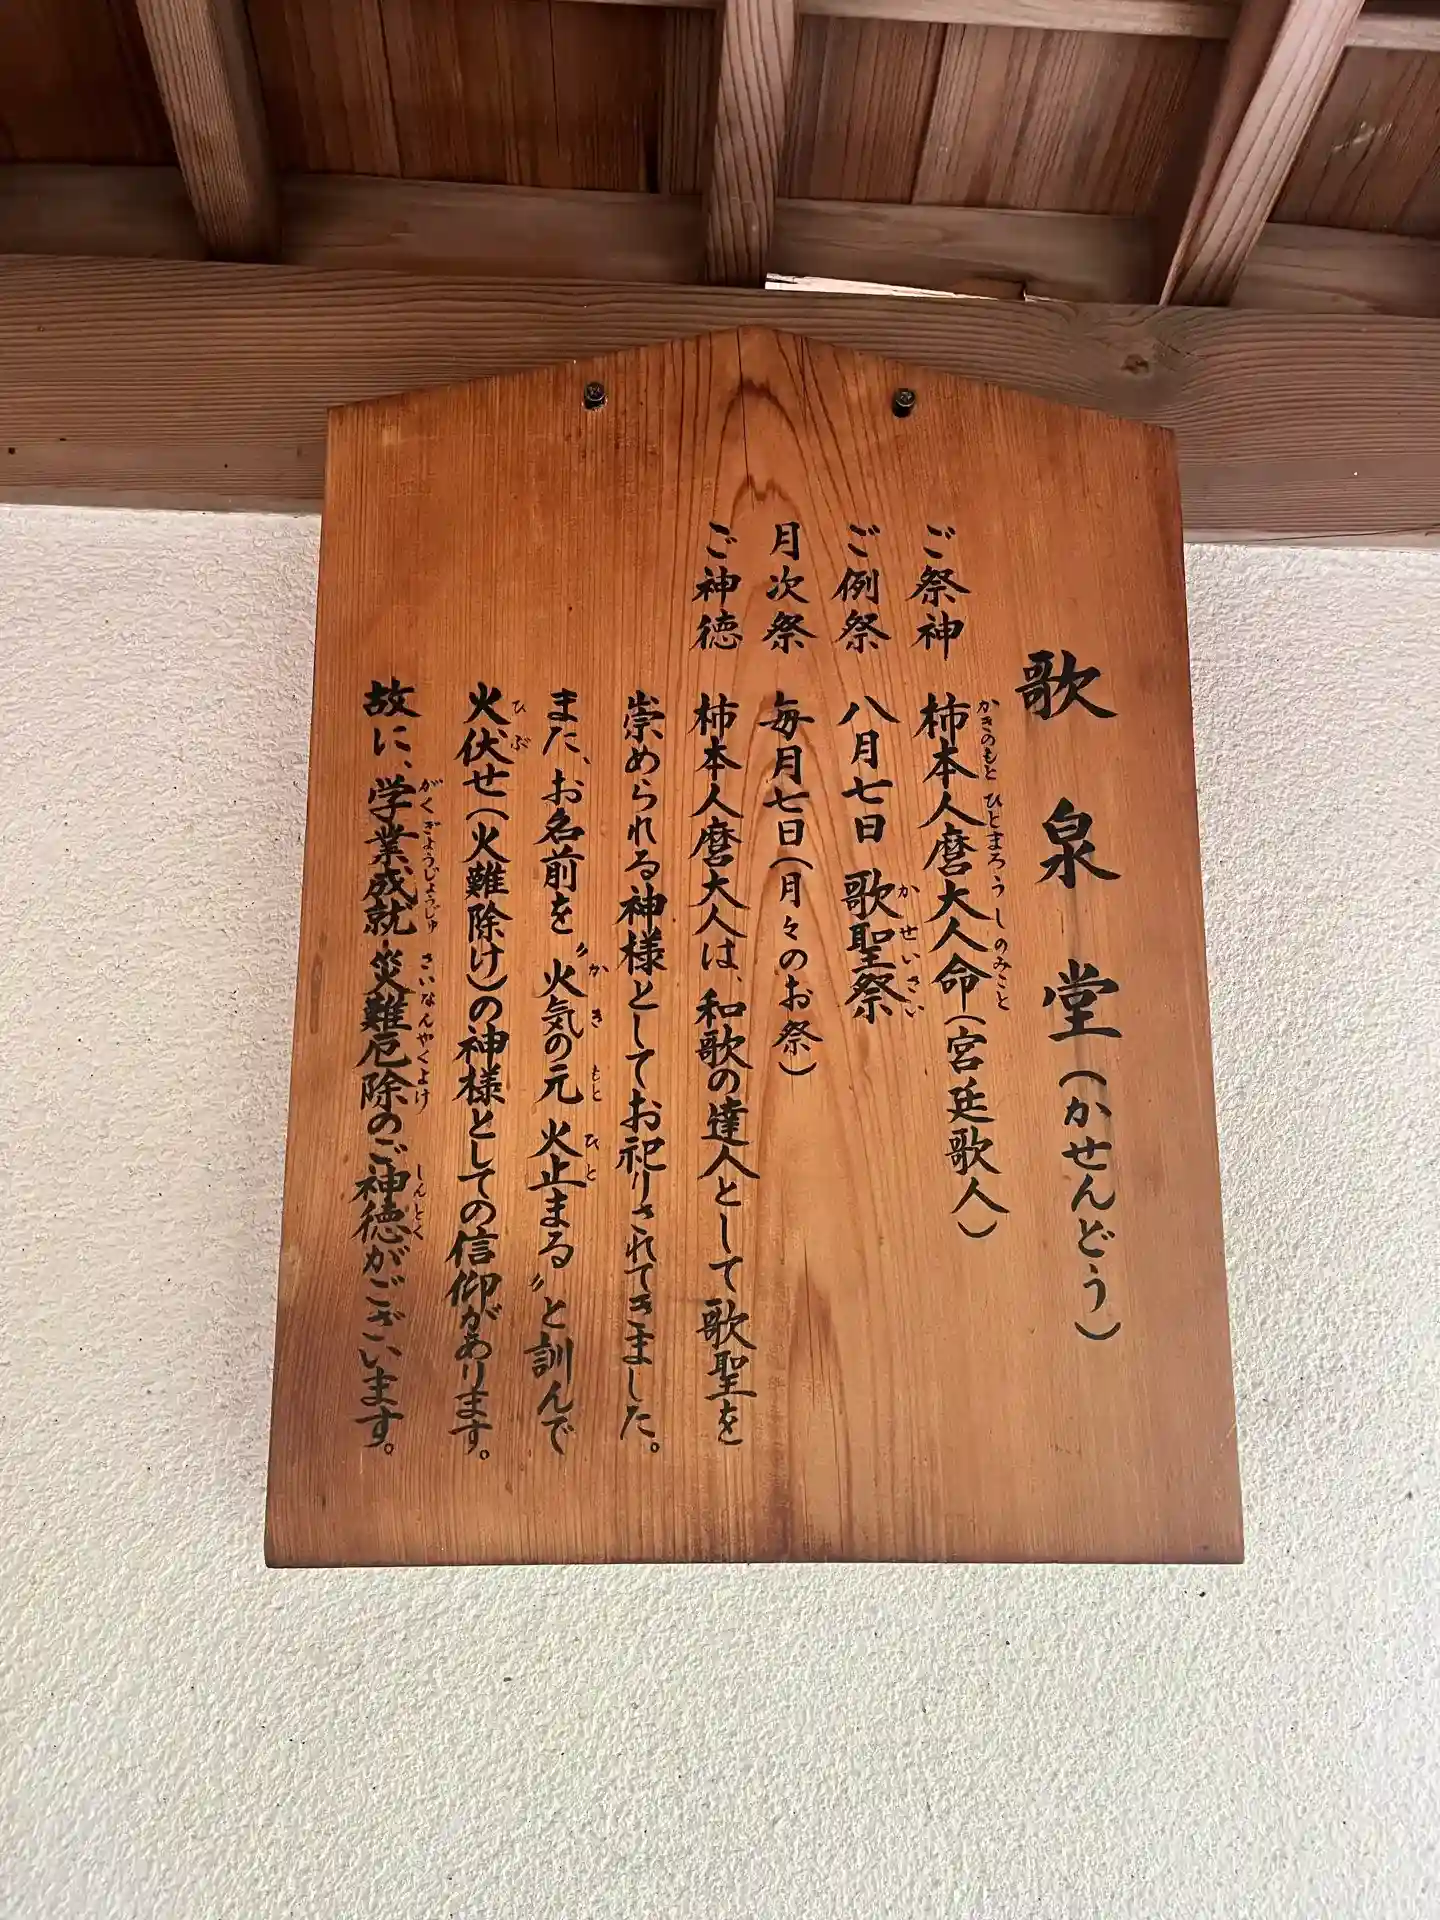 歌泉堂(かせんどう)
ご祭神 柿本人麿大人命(宮廷歌人)
かきのもと ひとまろ うしのみこと
ご例祭 八月七日 歌聖祭
かせいさい
月次祭 毎月七日(月々のお祭)
ご神徳 柿本人麿大人は、和歌の達人として歌聖を
崇められる神様としてお祀りされてきました。
また、お名前を〝火気の元 火止まる〟と訓んで
かき もと ひと
火伏せ(火難除け)の神様としての信仰があります。
ひぶ
故に、学業成就・災難厄除のご神徳がございます。
がくぎょうじょうじゅ さいなんやくよけ しんとく